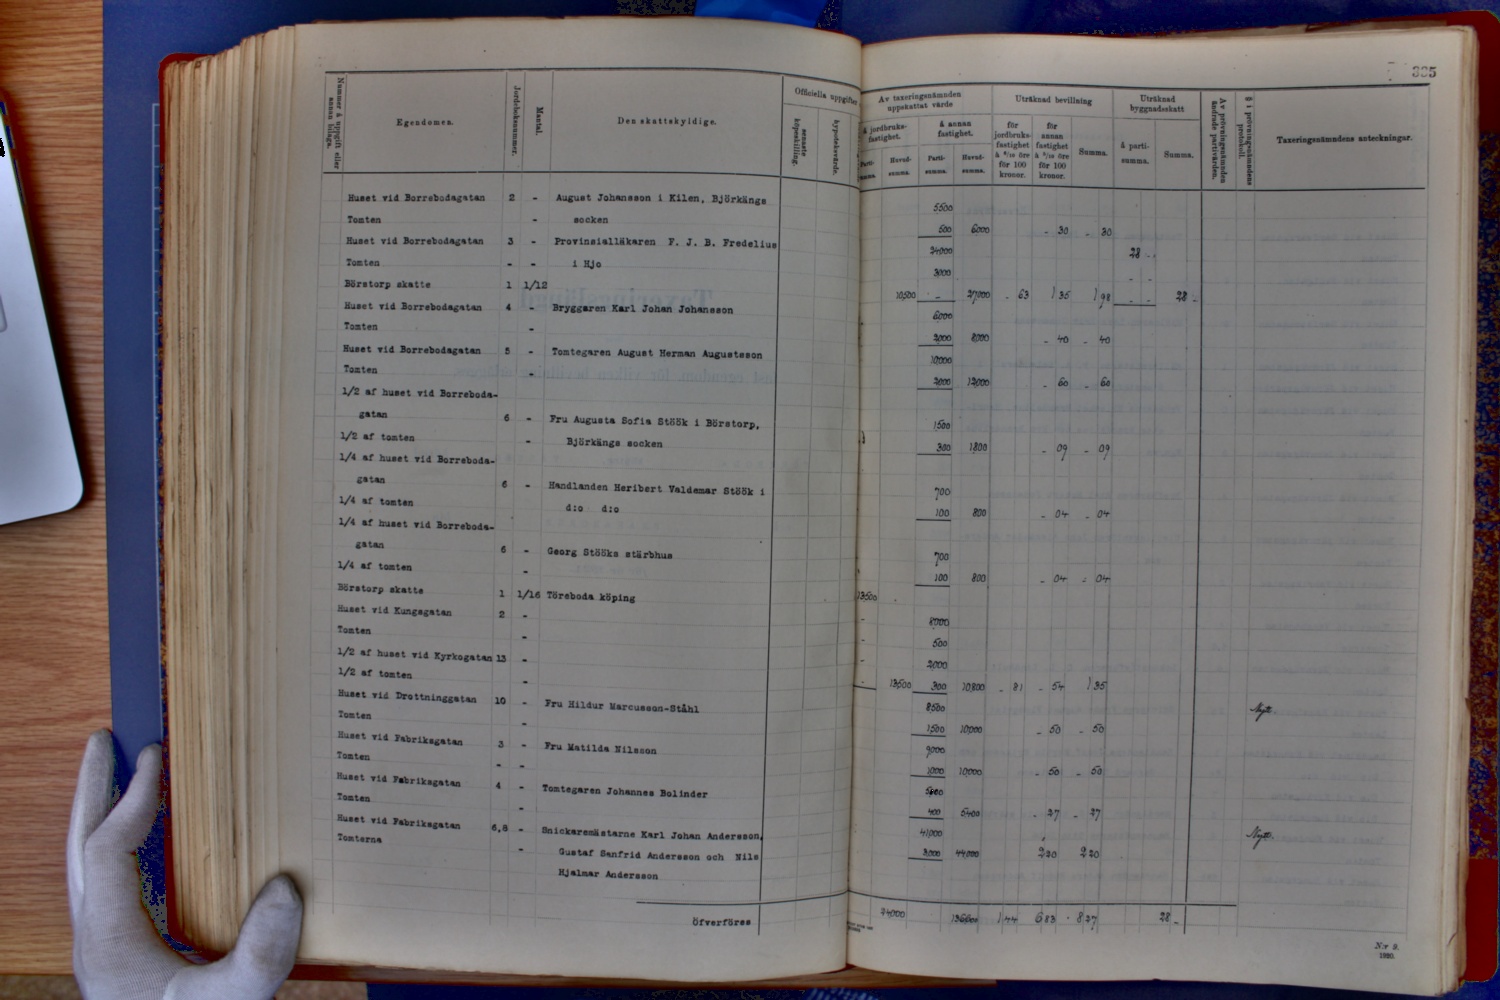 385
Nummer å uppgift eller annan bilaga.
Egendomen.
Jordeboksnummer.
Mantal.
Den skattskyldige.
Officiella uppgifter
senaste köpeskilling.
hypoteksvärde.
Av taxeringsnämnden uppskattat värde
å jordbruks-fastighet.
å annan fastighet.
Parti-summa.
Huvud-summa.
Parti-summa.
Huvud-summa.
Uträknad bevillning
för jordbruks-fastighet à 6/10 öre för 100 kronor.
för annan fastighet à 5/10 öre för 100 kronor.
Summa.
Uträknad byggnadsskatt
å parti-summa.
Summa.
Av prövningsnämnden ändrade partivärden.
§ i prövningsnämndens protokoll.
Taxeringsnämndens anteckningar.
Huset vid Borrebodagatan 2 - August Johansson i Kilen, Björkängs 5500
Tomten - socken 500 6000 - 30 - 30
Huset vid Borrebodagatan 3 - Provinsialläkaren F. J. B. Fredelius 24000 28 -
Tomten - - i Hjo 3000 - -
Börstorp skatte 1 1/12 10500 - 27000 - 63 1 35 1 98 - - 28 -
Huset vid Borrebodagatan 4 - Bryggaren Karl Johan Johansson 6000
Tomten - 2000 8000 - 40 - 40
Huset vid Borrebodagatan 5 - Tomtegaren August Herman Augustsson 10000
Tomten - 2000 12000 - 60 - 60
1/2 af huset vid Borreboda-
gatan 6 - Fru Augusta Sofia Stöök i Börstorp, 1500
1/2 af tomten - Björkängs socken 300 1800 - 09 - 09
1/4 af huset vid Borreboda-
gatan 6 - Handlanden Heribert Valdemar Stöök i 700
1/4 af tomten d:o d:o 100 800 - 04 - 04
1/4 af huset vid Borreboda-
gatan 6 - Georg Stööks stärbhus 700
1/4 af tomten - 100 800 - 04 - 04
Börstorp skatte 1 1/16 Töreboda köping 13500 -
Huset vid Kungsgatan 2 - - 8000
Tomten - - 500
1/2 af huset vid Kyrkogatan 13 - - 2000
1/2 af tomten - - 13500 300 10800 - 81 - 54 1 35
Huset vid Drottninggatan 10 - Fru Hildur Marcusson-Ståhl 8500 Nytt.
Tomten - 1500 10000 - 50 - 50
Huset vid Fabriksgatan 3 - Fru Matilda Nilsson 9000
Tomten - - 1000 10000 - 50 - 50
Huset vid Fabriksgatan 4 - Tomtegaren Johannes Bolinder 5000
Tomten - 400 5400 - 27 - 27
Huset vid Fabriksgatan 6,8 - Snickaremästarne Karl Johan Andersson, 41000 Nytt.
Tomterna - Gustaf Sanfrid Andersson och Nils 3000 44000 2 20 2 20
Hjalmar Andersson
Öfverföres 24000 136600 1 44 6 83 8 27 28 -
N:r 9.
1920.